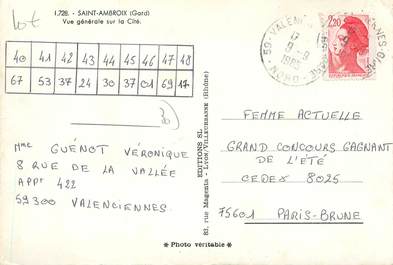 1.728. - SAINT-AMBROIX (Gard)
Vue générale sur la Cité.
lot
40 41 42 43 44 45 46 47 48
67 53 37 24 30 37 01 69 17
Mme GUÉNOT VÉRONIQUE
8 RUE DE LA VALLÉE
APPT 422
59300 VALENCIENNES.
EDITIONS SL
83, rue Magenta - LYON-VILLEURBANNE (Rhône)
59 - VALENCIENNES
17 H
9 - 9
1985
NORD
2,20
FEMME ACTUELLE
GRAND CONCOURS GAGNANT
DE L'ÉTÉ
CEDEX 8025
75601 PARIS-BRUNE
* Photo véritable *